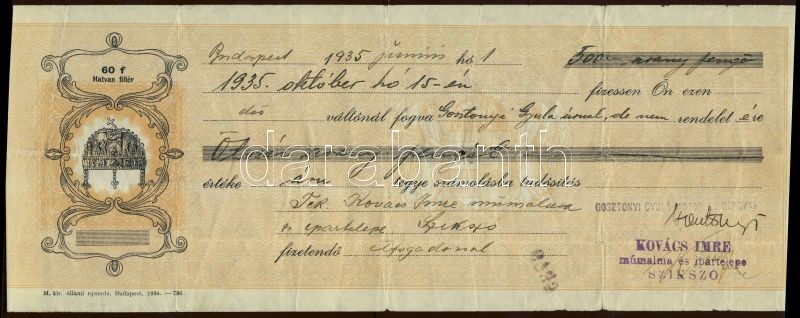 60 f
Hatvan fillér
Budapest 1935 junius hó 1 500 arany pengő
1935. október hó 15-én fizessen Ön ezen
első váltónál fogva Gosztonyi Gyula úrnak, de nem rendeletére
Ötszáz arany pengőt
értéke áru tegye számolásba tudósítás
Tek. Kovács Imre műmalma
és ipartelepe Szikszó
fizetendő
GOSZTONYI GYULA
Gosztonyi
KOVÁCS IMRE
műmalma és ipartelepe
SZIKSZÓ
M. kir. állami nyomda. Budapest, 1934. — 796.
databarth